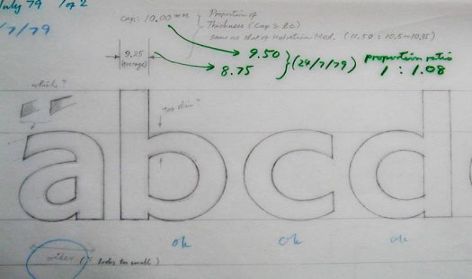 July 79 1 of 2
/7/79
cap: 10.00 mm
Proportion of
Thickness (Cap & lc)
same as that of Helvetica Med. (11.50 : 10.5~10.85)
9.25
(average)
9.50
8.75
(24/7/79)
proportion ratio
1 : 1.08
which?
too thin?
abcd
ok ok ok
wider (? looks too small)